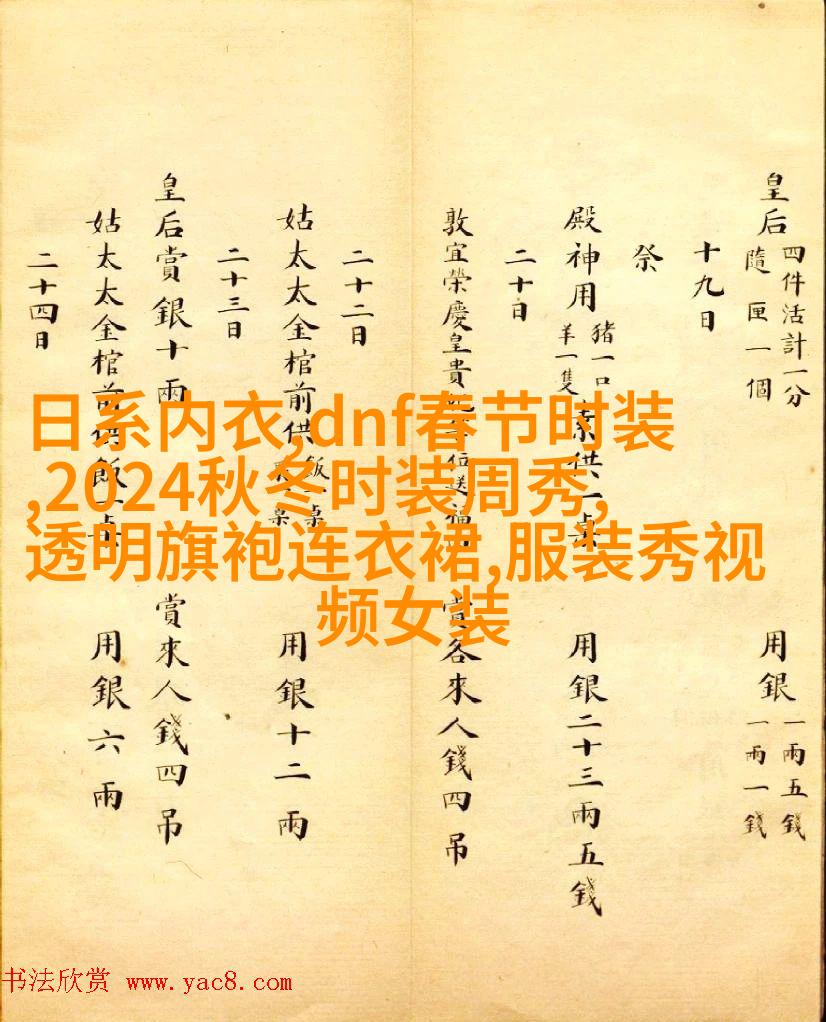 皇后 四件活計一分 隨匣一個 用銀 一兩五錢 一兩一錢
十九日
祭
殿神用 豬一口 羊一隻 素供一桌 用銀二十三兩五錢
二十日
敦宜榮慶皇貴妃等位送福 賞各來人錢四吊
二十二日
姑太太金棺前供 飯一桌 桌 用銀十二兩
二十三日
皇后賞銀十兩 賞來人錢四吊
姑太太金棺前供飯一桌 用銀六兩
二十四日
日系内衣,dnf春节时装
,2024秋冬时装周秀,
透明旗袍连衣裙,服装秀视
频女装
书法欣赏 www.yac8.com